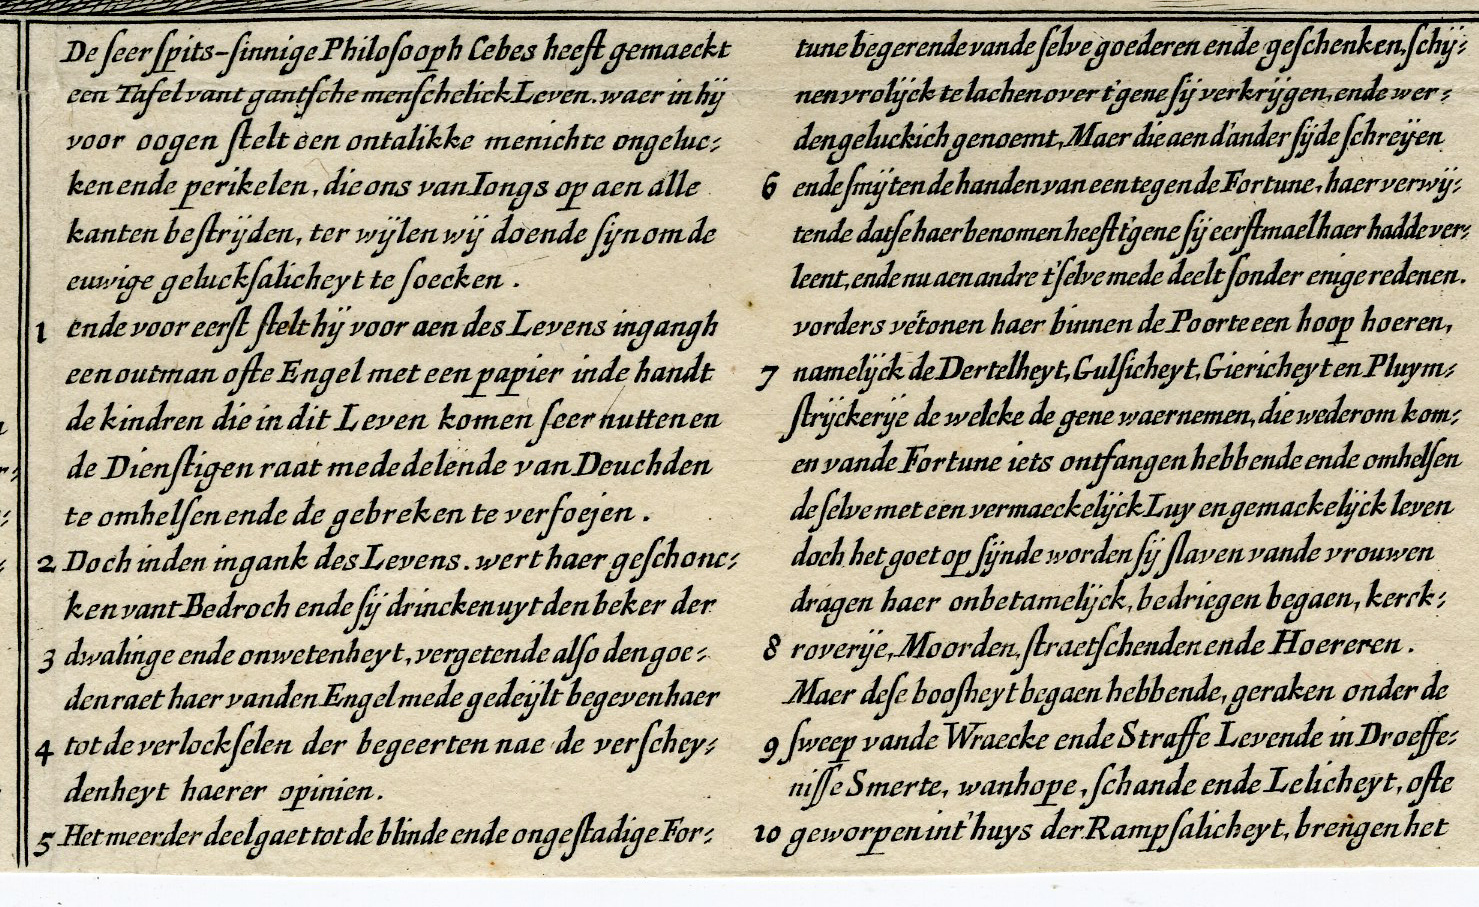 De seer spits-sinnige Philosooph Cebes heeft gemaeckt
een Tafel vant gantsche menschelick Leven. waer in hÿ
voor oogen stelt een ontalikke menichte ongeluc:
ken ende perikelen, die ons van Iongs op aen alle
kanten bestrÿden, ter wÿlen wÿ doende sÿn om de
euwige gelucksalicheyt te soecken.
1 ende voor eerst stelt hÿ voor aen des Levens ingangh
een outman ofte Engel met een papier inde handt
de kindren die in dit Leven komen seer nutten en
de Dienstigen raat mede delende van Deuchden
te omhelsen ende de gebreken te verfoejen.
2 Doch inden ingank des Levens. wert haer geschonc:
ken vant Bedroch ende sÿ drincken uyt den beker der
3 dwalinge ende onwetenheyt, vergetende also den goe:
den raet haer vanden Engel mede gedeÿlt begeven haer
4 tot de verlockselen der begeerten nae de verschey:
denheyt haerer opinien.
5 Het meerder deel gaet tot de blinde ende ongestadige For:
tune begerende vande selve goederen ende geschenken, schÿ:
nen vrolÿck te lachen over t'gene sÿ verkrÿgen, ende wer:
den geluckich genoemt, Maer die aen d'ander sÿde schreÿen
6 ende smÿten de handen van een tegen de Fortune, haer verwÿ:
tende datse haer benomen heeft t'gene sÿ eerstmael haer hadde ver:
leent, ende nu aen andre t'selve mede deelt sonder enige redenen.
vorders vetonen haer binnen de Poorte een hoop hoeren,
7 namelÿck de Dertelheyt, Gulsicheyt, Giericheyt en Pluym:
strÿckerÿe de welcke de gene waernemen, die wederom kom:
en vande Fortune iets ontfangen hebbende ende omhelsen
de selve met een vermaeckelÿck Luy en gemackelÿck leven
doch het goet op sÿnde worden sÿ slaven vande vrouwen
dragen haer onbetamelÿck, bedriegen begaen, kerck:
8 roverÿe, Moorden, straetschenden ende Hoereren.
Maer dese boosheyt begaen hebbende, geraken onder de
9 sweep vande Wraecke ende Straffe Levende in Droeffe:
nisse Smerte, wanhope, schande ende Lelicheyt, ofte
10 geworpen int'huys der Rampsalicheyt, brengen het